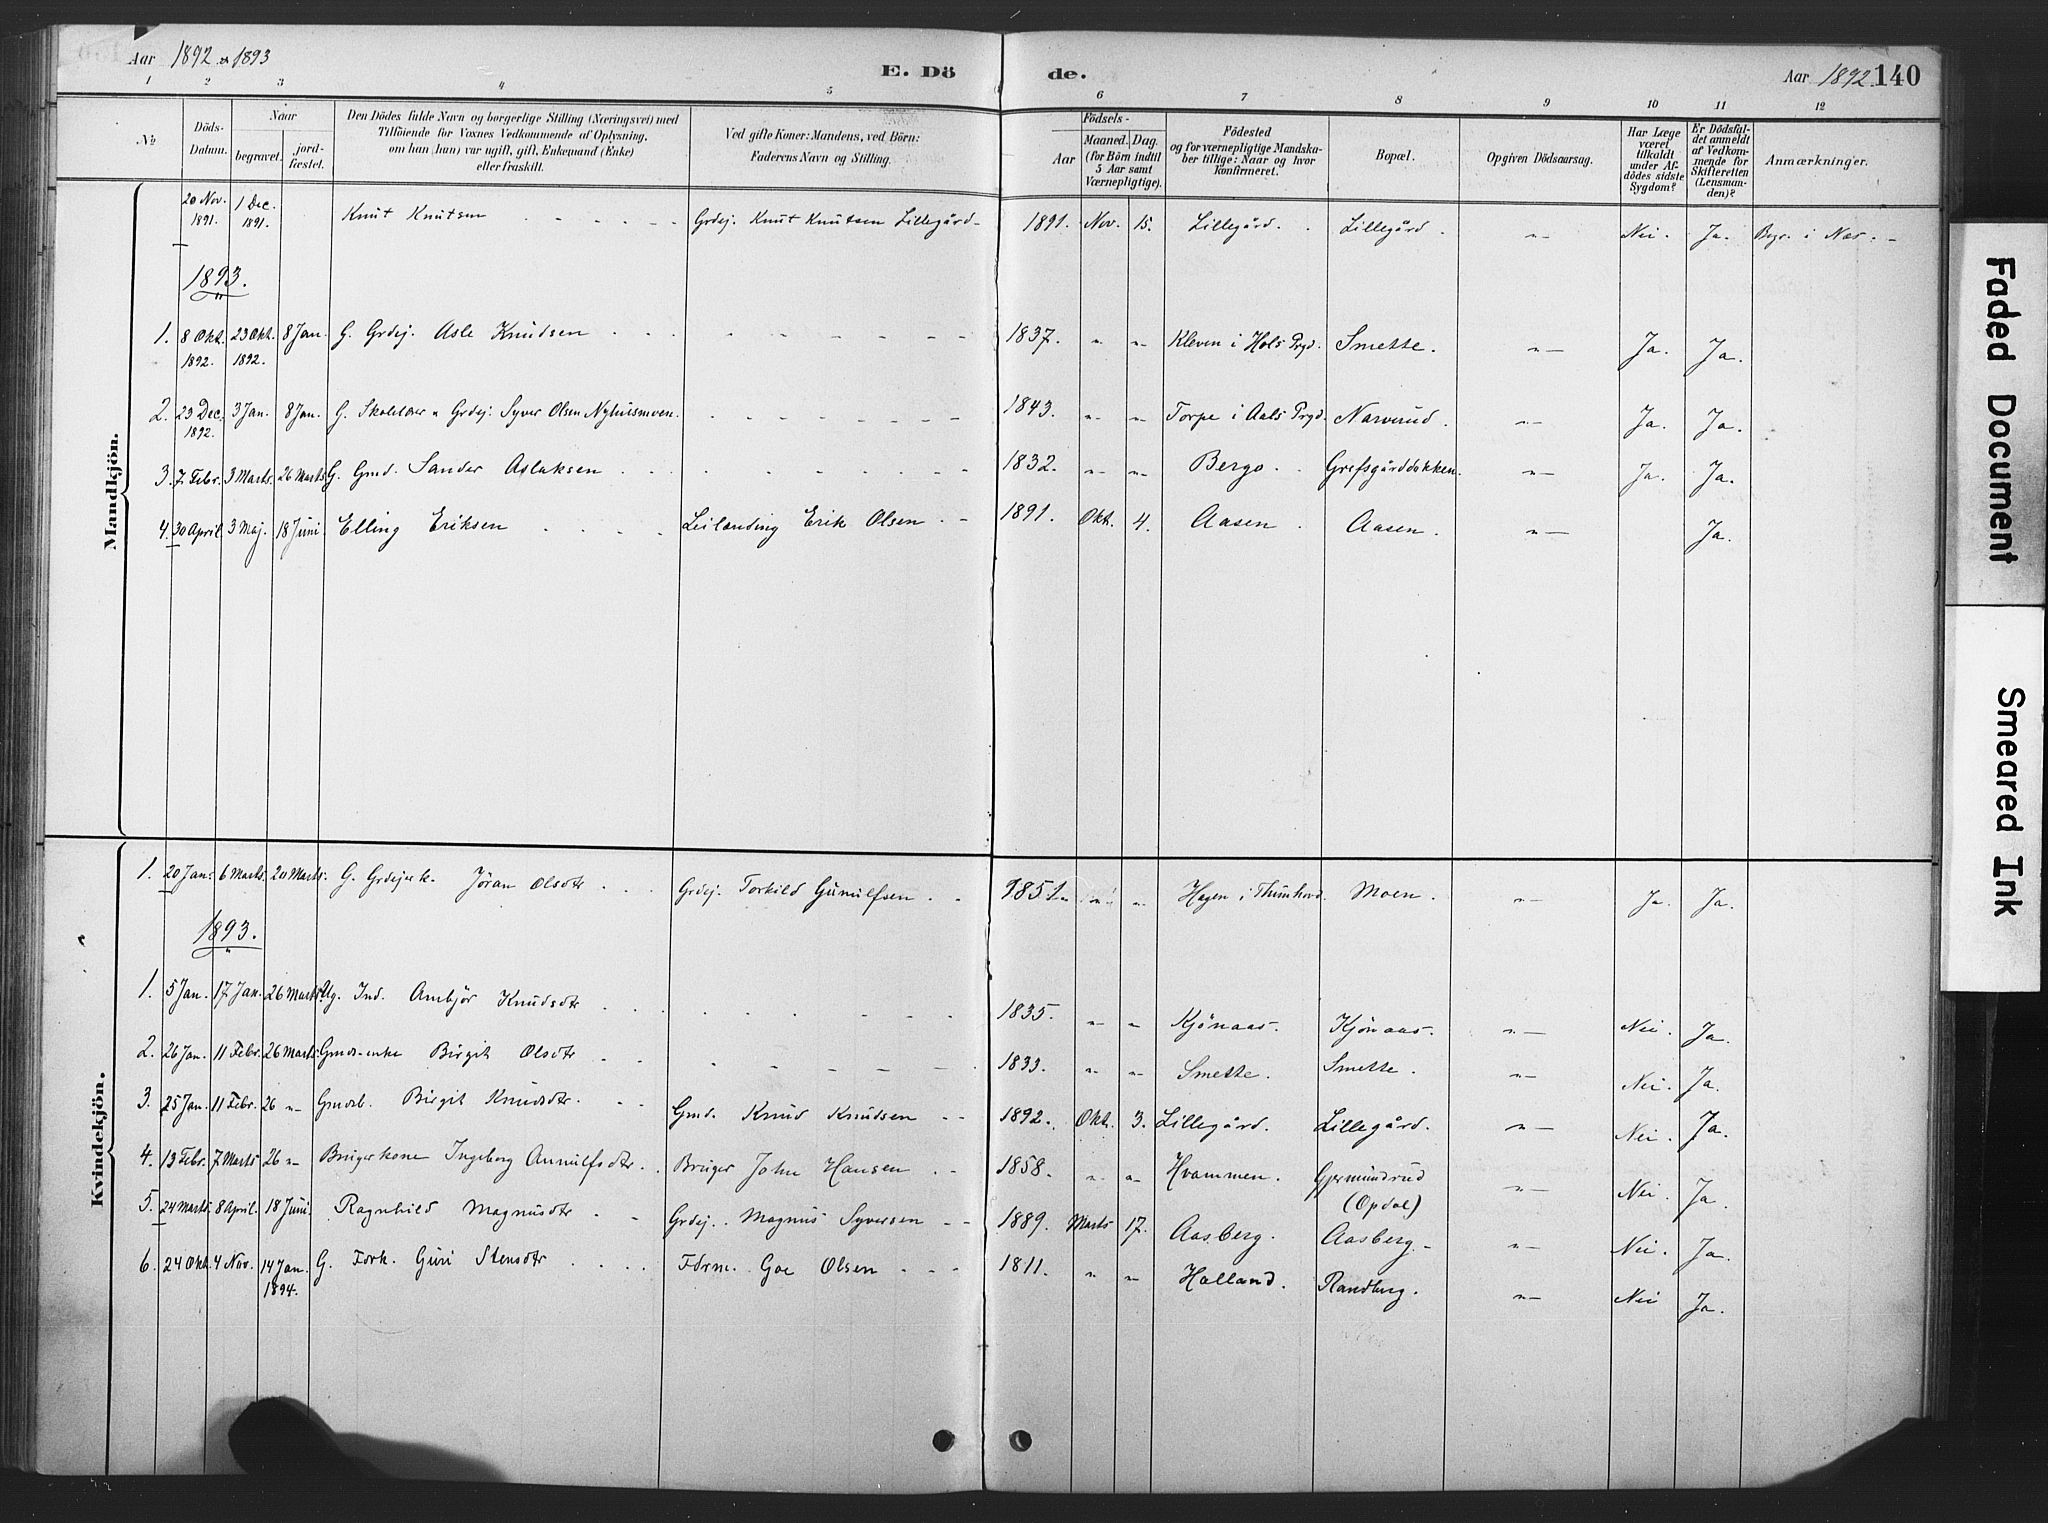 Aar 1892 & 1893 E. Dö de. Aar 1892. 140
1 2 3 4 5 6 7 8 9 10 11 12
No
Döds-Datum.
Naar
begravet.
jord-fæstet.
Den Dödes fulde Navn og borgerlige Stilling (Næringsvei) med
Tilföiende for Voxnes Vedkommende af Oplysning,
om han (hun) var ugift, gift, Enkemand (Enke)
eller fraskilt.
Ved gifte Koner: Mandens, ved Börn:
Faderens Navn og Stilling.
Födsels-
Aar
Maaned. Dag.
(for Börn indtil
5 Aar samt
Værnepligtige).
Födested
og for værnepligtige Mandska-
ber tillige: Naar og hvor
konfirmeret.
Bopæl.
Opgiven Dödsaarsag.
Har Læge
været
tilkaldt
under Af-
dödes sidste
Sygdom?
Er Dödsfal-
det anmeldt
af Vedkom-
mende for
Skifteretten
(Lensman-
den)?
Anmærkninger.
Mandkjön.
20 Nov. 1891. 1 Dec. 1891. Knut Knutsen - - - - Grdej. Knut Knutsen Lillegård - 1891. Nov. 15. Lillegård. Lillegård. „— Nei. Ja. Begr. i Næs. -
1893.
1. 8 Okt. 1892. 23 Okt. 1892. 8 Jan. G. Grdej. Asle Knudsen - - - 1837. „ „ Kleven i Hols Prgd. Smette. „— Ja. Ja.
2. 23 Dec. 1892. 3 Jan. 8 Jan. G. Skolelær. & Grdej. Syver Olsen Nyhusmoen. 1843. „ „ Torpe i Aals Prgd. Narverud. „— Ja. Ja.
3. 7 Febr. 3 Marts. 26 Marts G. Gmd. Sander Aslaksen - - - 1832. „ „ Bergo. Grefsgårddokken. „— Ja. Ja.
4. 30 April. 3 Maj. 18 Juni. Elling Eriksen - - - Leilænding Erik Olsen - - 1891. Okt. 4. Aasen. Aasen. „— Ja.
Kvindekjön.
1. 20 Jan. 6 Marts. 20 Marts. G. Grdejerk. Jöran Olsdtr - - - Grdej. Torkild Gunulfsen - - 1851. „ „ Hagen i Thunhovd. Moen. „— Ja. Ja.
1893.
1. 5 Jan. 17 Jan. 26 Marts Ug. Ind. Ambjör Knudsdtr - - - 1835. „ „ Kjönaas. Kjönaas. „— Nei. Ja.
2. 26 Jan. 11 Febr. 26 Marts. Gmds-enke Birgit Olsdtr - - 1833. „ „ Smette. Smette. „— Nei. Ja.
3. 25 Jan. 11 Febr. 26 „— Gmdsb. Birgit Knudsdtr. - - Gmd. Knud Knudsen - - 1892. Okt. 3. Lillegård. Lillegård. „— Nei. Ja.
4. 13 Febr. 7 Marts 26 „— Brugerkone Ingeborg Arnulfsdtr. - Bruger John Hansen - - 1858. „ „ Hvammen. Gjermundrud (Opdal) „— Nei. Ja.
5. 24 Marts. 8 April. 18 Juni. Ragnhild Magnusdtr - - Grdej. Magnus Syversen - - 1889. Marts 17. Aasberg. Aasberg. - „— Nei. Ja.
6. 24 Okt. 4 Nov. 14 Jan. 1894. G. Guri Stensdtr - - - Olsen - - - 1811. „ „ Haland. Randberg. „— Nei Ja.
Faded Document
Smeared Ink